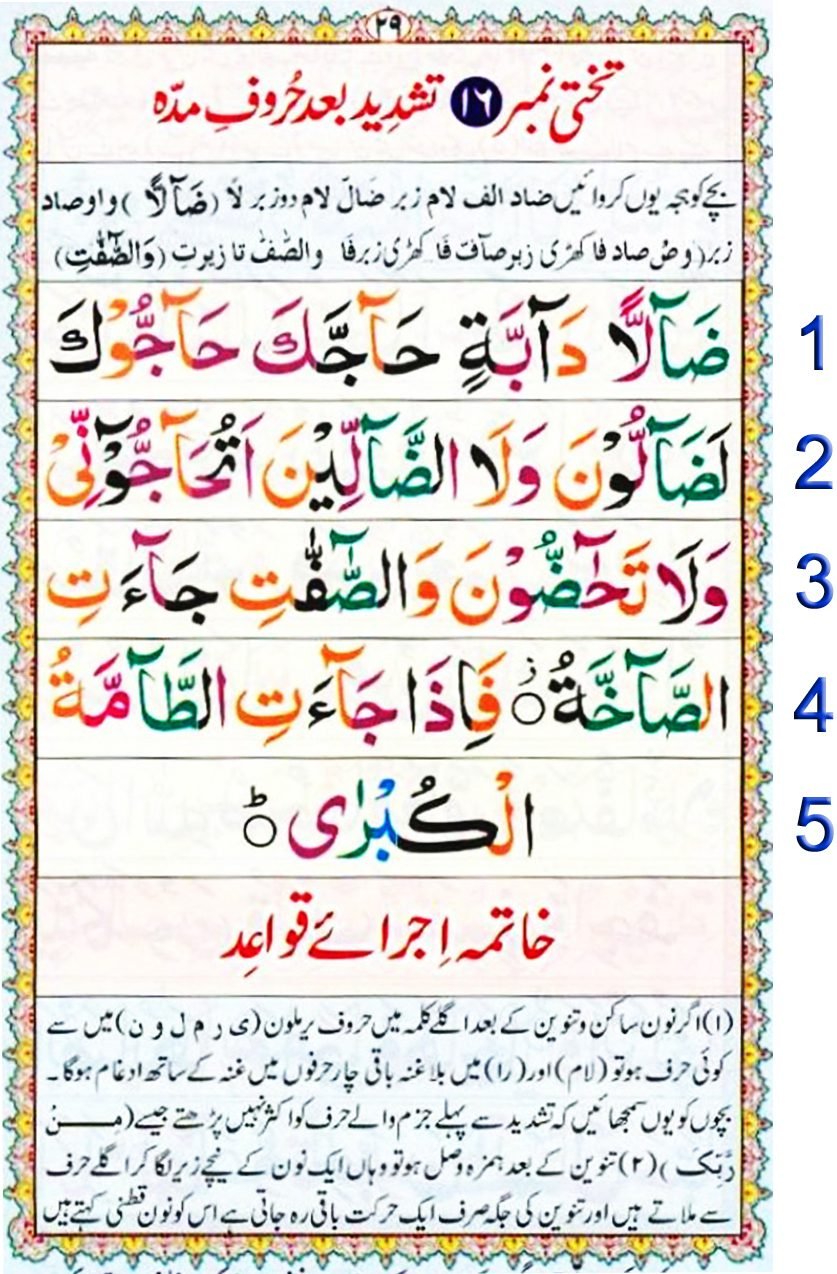 ۲۹
تختی نمبر ۱۶ تشدِید بعد حُروفِ مدّہ
بچے کو ہجہ یوں کروائیں ضاد الف لام زبر ضَالّ لام دو زبر لاً (ضَآلًّا) واو صاد
زبر (وصْ صاد فا کھڑی زبر صآفّ فا کھڑی زبر فٰا والصّٰفّٰ تا زیر تِ (وَالصّٰٓفّٰتِ)
ضَآلًّا دَآبَّةٍ حَآجَّكَ حَآجُّوْكَ 1
لَضَآلُّوْنَ وَلَا الضَّآلِّيْنَ اَتُحَآجُّوْٓنِّيْ 2
وَلَا تَحٰٓضُّوْنَ وَالصّٰٓفّٰتِ جَآءَتِ 3
الصَّآخَّةُ ۝ز فَاِذَا جَآءَتِ الطَّآمَّةُ 4
الْكُبْرٰى ۝ط 5
خاتمہ اِجرائے قواعِد
(۱) اگر نون ساکن و تنوین کے بعد اگلے کلمہ میں حروف یرملون (ی ر م ل و ن) میں سے
کوئی حرف ہو تو (لام) اور (را) میں بلا غنہ باقی چار حرفوں میں غنہ کے ساتھ ادغام ہوگا۔
بچوں کو یوں سمجھائیں کہ تشدید سے پہلے جزم والے حرف کو اکثر نہیں پڑھتے جیسے (مِنْ
رَّبِّکَ) (۲) تنوین کے بعد ہمزہ وصل ہو تو وہاں ایک نون کے نیچے زیر لگا کر اگلے حرف
سے ملاتے ہیں اور تنوین کی جگہ صرف ایک حرکت باقی رہ جاتی ہے اس کو نون قطنی کہتے ہیں